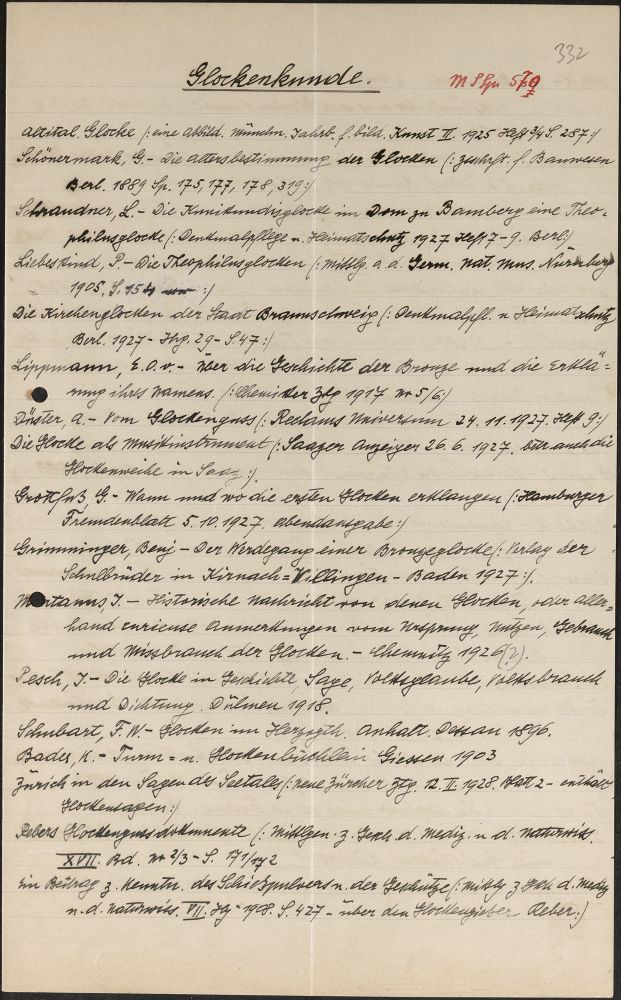 332
Glockenkunde.
altital. Glocke /: eine Abbild. Münchn. Jahrb. f. bild. Kunst II. 1925 Heft 3/4 S. 287 :/
Schönermark, G. - Die Altersbestimmung der Glocken (: Zeitschft. f. Bauwesen
Berl. 1889 Sp. 175, 177, 178, 319 :)
Schraudner, L. - Die Kunikundisglocke im Dom zu Bamberg eine Theo-
philusglocke (: Denkmalpflege u. Heimatschutz 1927 Heft 7-9. Berl)
Liebeskind, P. - Die Theophilusglocken (: Mittlg. a. d. Germ. Nat. Mus. Nürnberg
1905, S. :)
Die Kirchenglocken der Stadt Braunschweig (: Denkmalpfl. u Heimatschutz
Berl. 1927 - Jhg. 29 - S 47 :)
Lippmann, E. O. v. - Über die Geschichte der Bronze und die Erklä=
rung ihres Namens. (: Chemiker Ztg 1917 No 5/6 :)
Düster, A. - Vom Glockenguss (: Reclams Universum 24. 11. 1927. Heft 9 :)
Die Glocke als Musikinstrument (: Saazer Anzeiger 26. 6. 1927. betr. auch die
Glockenweihe in Saaz :).
G. - Wann und wo die ersten Glocken erklangen (: Hamburger
Fremdenblatt 5. 10. 1927. Abendausgabe :)
Grimminger, Benj - Der Werdegang einer Bronzeglocke (: Verlag der
Schulbrüder in Kirnach = Villingen - Baden 1927 :).
J. - Historische Nachricht von denen Glocken, oder aller=
hand curieuse Anmerkungen vom Ursprung, Nutzen, Gebrauch
und Missbrauch der Glocken. - Chemnitz 1926 (?).
Pesch, J. - Die Glocke in Geschichte, Sage, Volksglaube, Volksbrauch
und Dichtung. Dülmen 1918.
Schubart, F. W. - Glocken im Herzogth. Anhalt. Dessau 1896.
Bader, K. - Turm = u. Glockenbüchlein Giessen 1903
Zürich in den Sagen des Seetales (: neue Zürcher Ztg. 12. II. 1928. Blatt 2 - enthält
Glockensagen :)
Rebers Glockengussdokumente (: Mittlgen. z. Gesch. d. Mediz. u d. Naturwiss.
XVII. Bd. No 2/3 - S. 171/172
Ein Beitrag z. Kenntn. des Schießpulvers u. der Geschütze (: Mittlg z Gesch d. Mediz
u. d. Naturwiss. VII. Jg - 1908. S. 427 - über den Glockengießer Reber :)